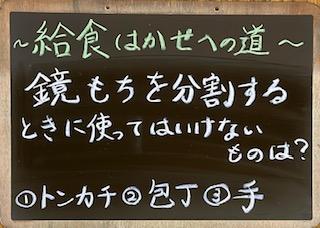 ~給食はかせへの道~
鏡もちを分割する
ときに使ってはいけない
ものは?
①トンカチ②包丁③手